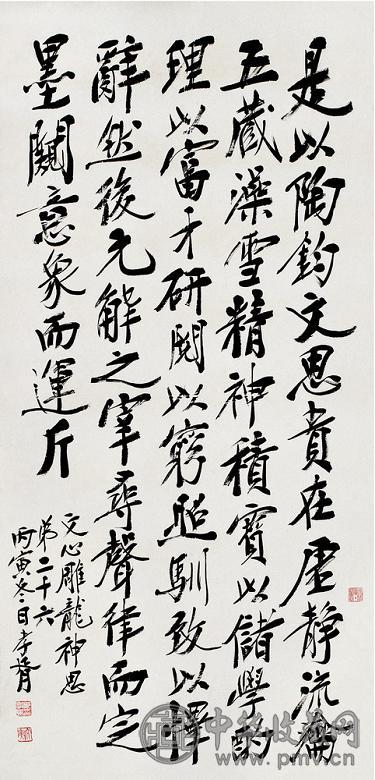 是以陶鈞文思貴在虛靜疏瀹
五藏澡雪精神積寶以儲學酌
理以富才研閱以窮照馴致以繹
辭然後元解之宰尋聲律而定
墨闚意象而運斤
文心雕龍神思
弟二十六
丙寅冬日孝胥
中华收藏网
www.pmv.cn